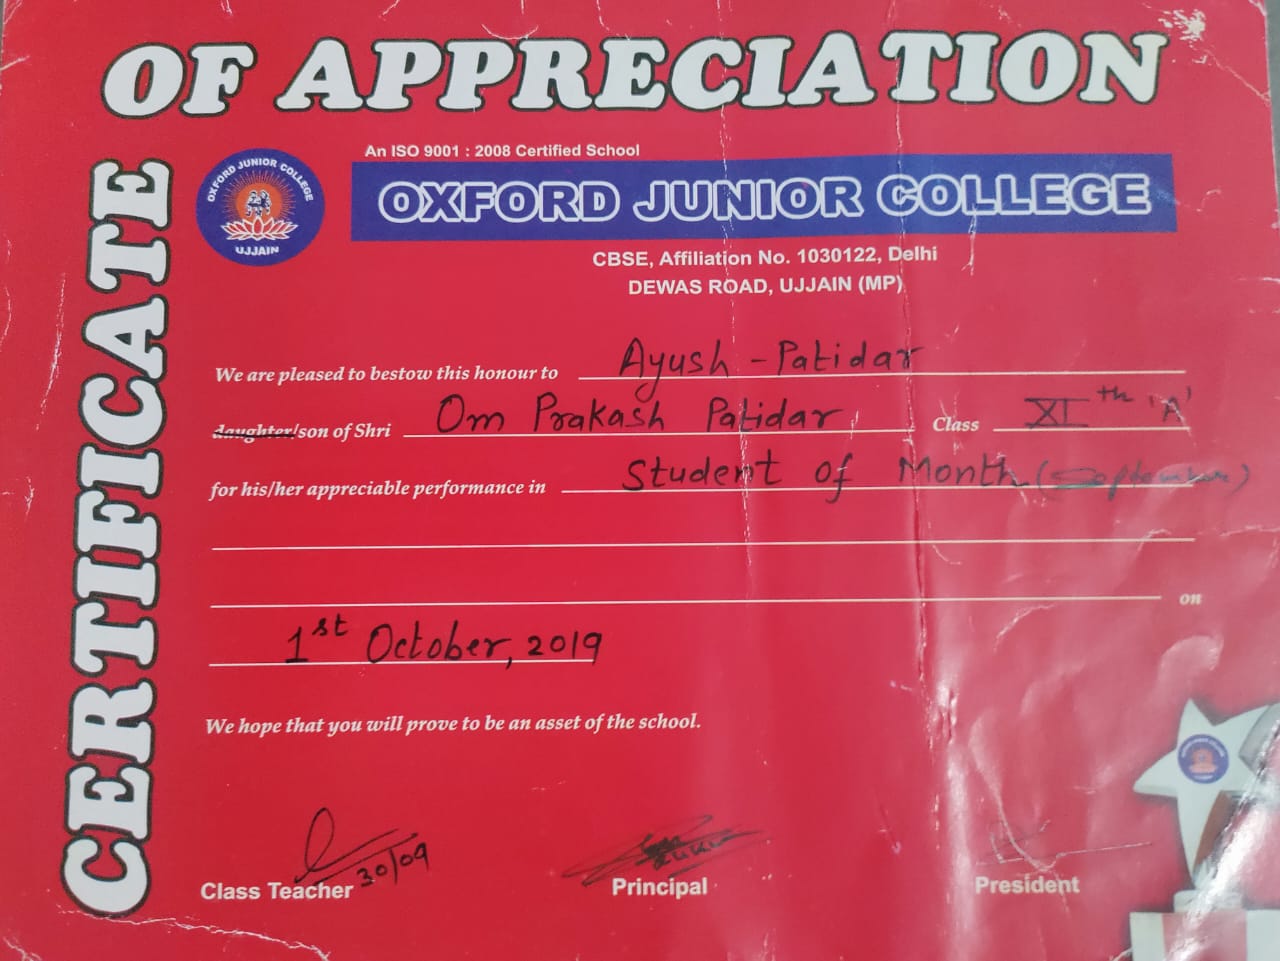 CERTIFICATE
OF APPRECIATION
An ISO 9001 : 2008 Certified School
OXFORD JUNIOR COLLEGE
UJJAIN
OXFORD JUNIOR COLLEGE
CBSE, Affiliation No. 1030122, Delhi
DEWAS ROAD, UJJAIN (MP)
We are pleased to bestow this honour to Ayush - Patidar
daughter/son of Shri Om Prakash Patidar Class XIth 'A'
for his/her appreciable performance in Student of Month (September)
on
1st October, 2019
We hope that you will prove to be an asset of the school.
30/09
Class Teacher Principal President